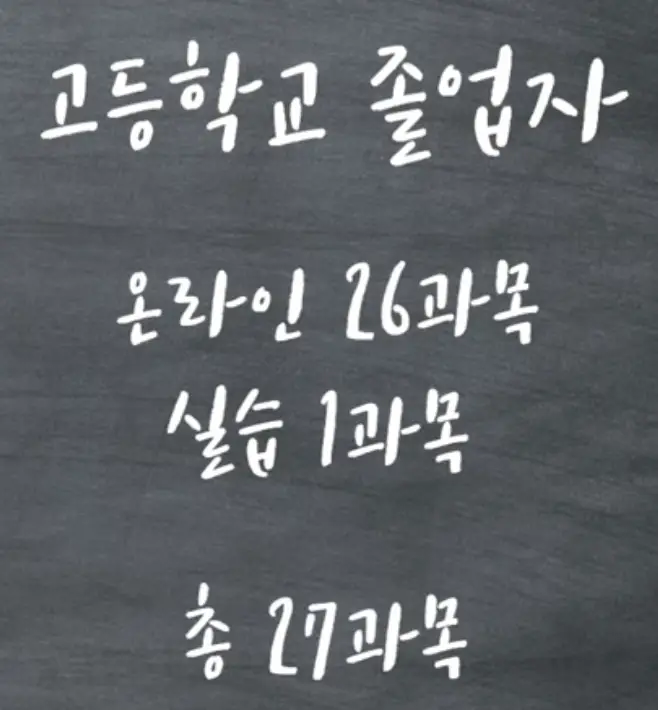 고등학교 졸업자
온라인 26과목
실습 1과목
총 27과목